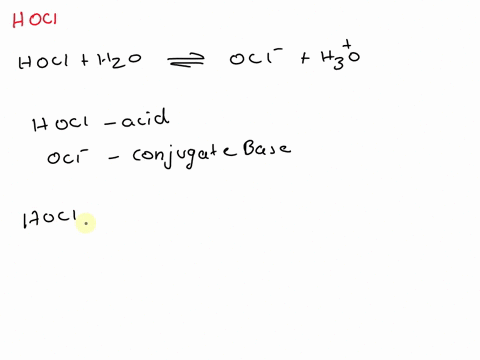 HOCl
HOCl + H2O ⇌ OCl⁻ + H3O⁺
HOCl - acid
OCl⁻ - conjugate Base
HOCl